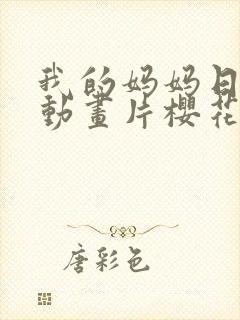 我的妈妈日
動畫片櫻花
唐彩色